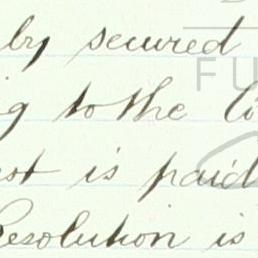 by secured
ing to the Co
ost is paid
Resolution is